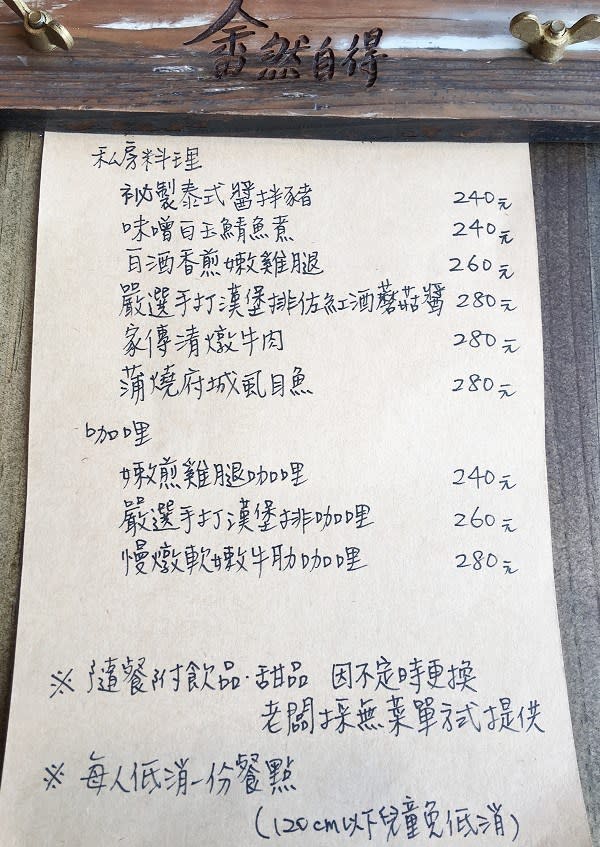 畬然自得
私房料理
祕製泰式醬拌豬 240元
味噌白玉鯖魚煮 240元
白酒香煎嫩雞腿 260元
嚴選手打漢堡排佐紅酒蘑菇醬 280元
家傳清燉牛肉 280元
蒲燒府城虱目魚 280元
咖哩
嫩煎雞腿咖哩 240元
嚴選手打漢堡排咖哩 260元
慢燉軟嫩牛肋咖哩 280元
※ 隨餐附飲品·甜品 因不定時更換
老闆採無菜單方式提供
※ 每人低消一份餐點
(120cm以下兒童免低消)